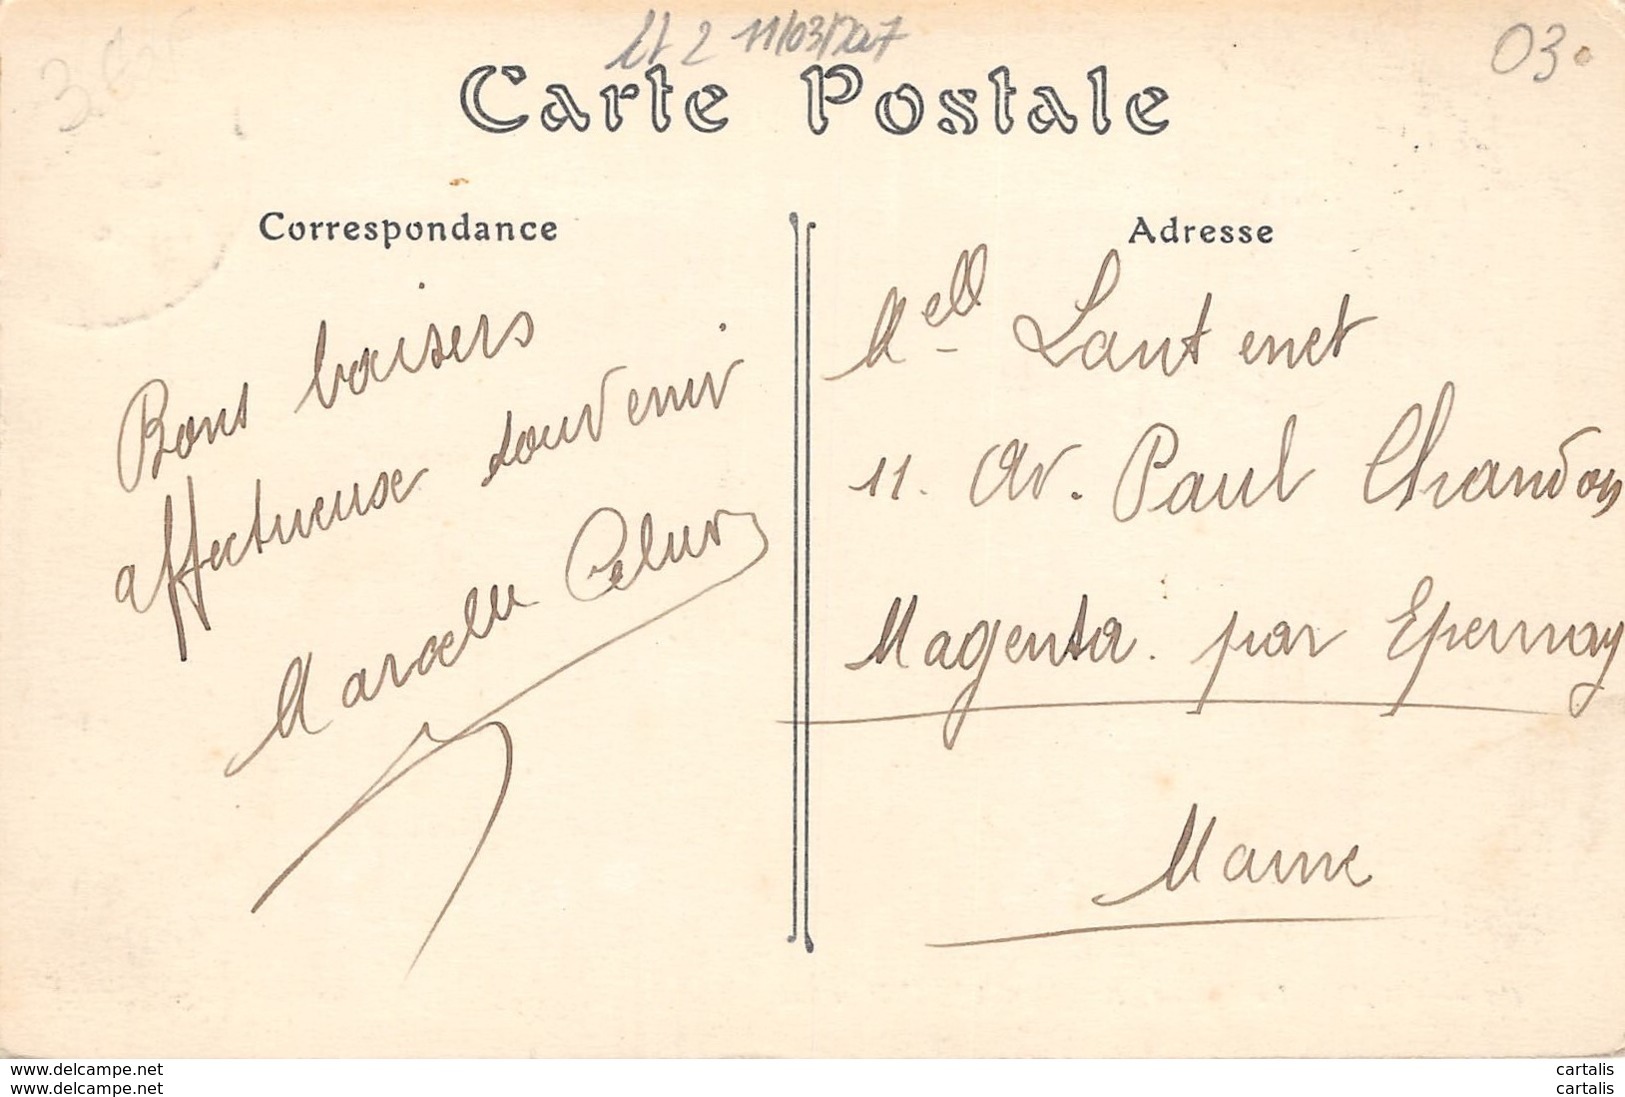 11/03/2017
03
Carte Postale
Correspondance
Adresse
Bons baisers
affectueuse souvenir
Marcelle
Melle Lantenet
11. Av. Paul Chandon
Magenta. par Epernay
Marne
www.delcampe.net
www.delcampe.net
cartalis
cartalis